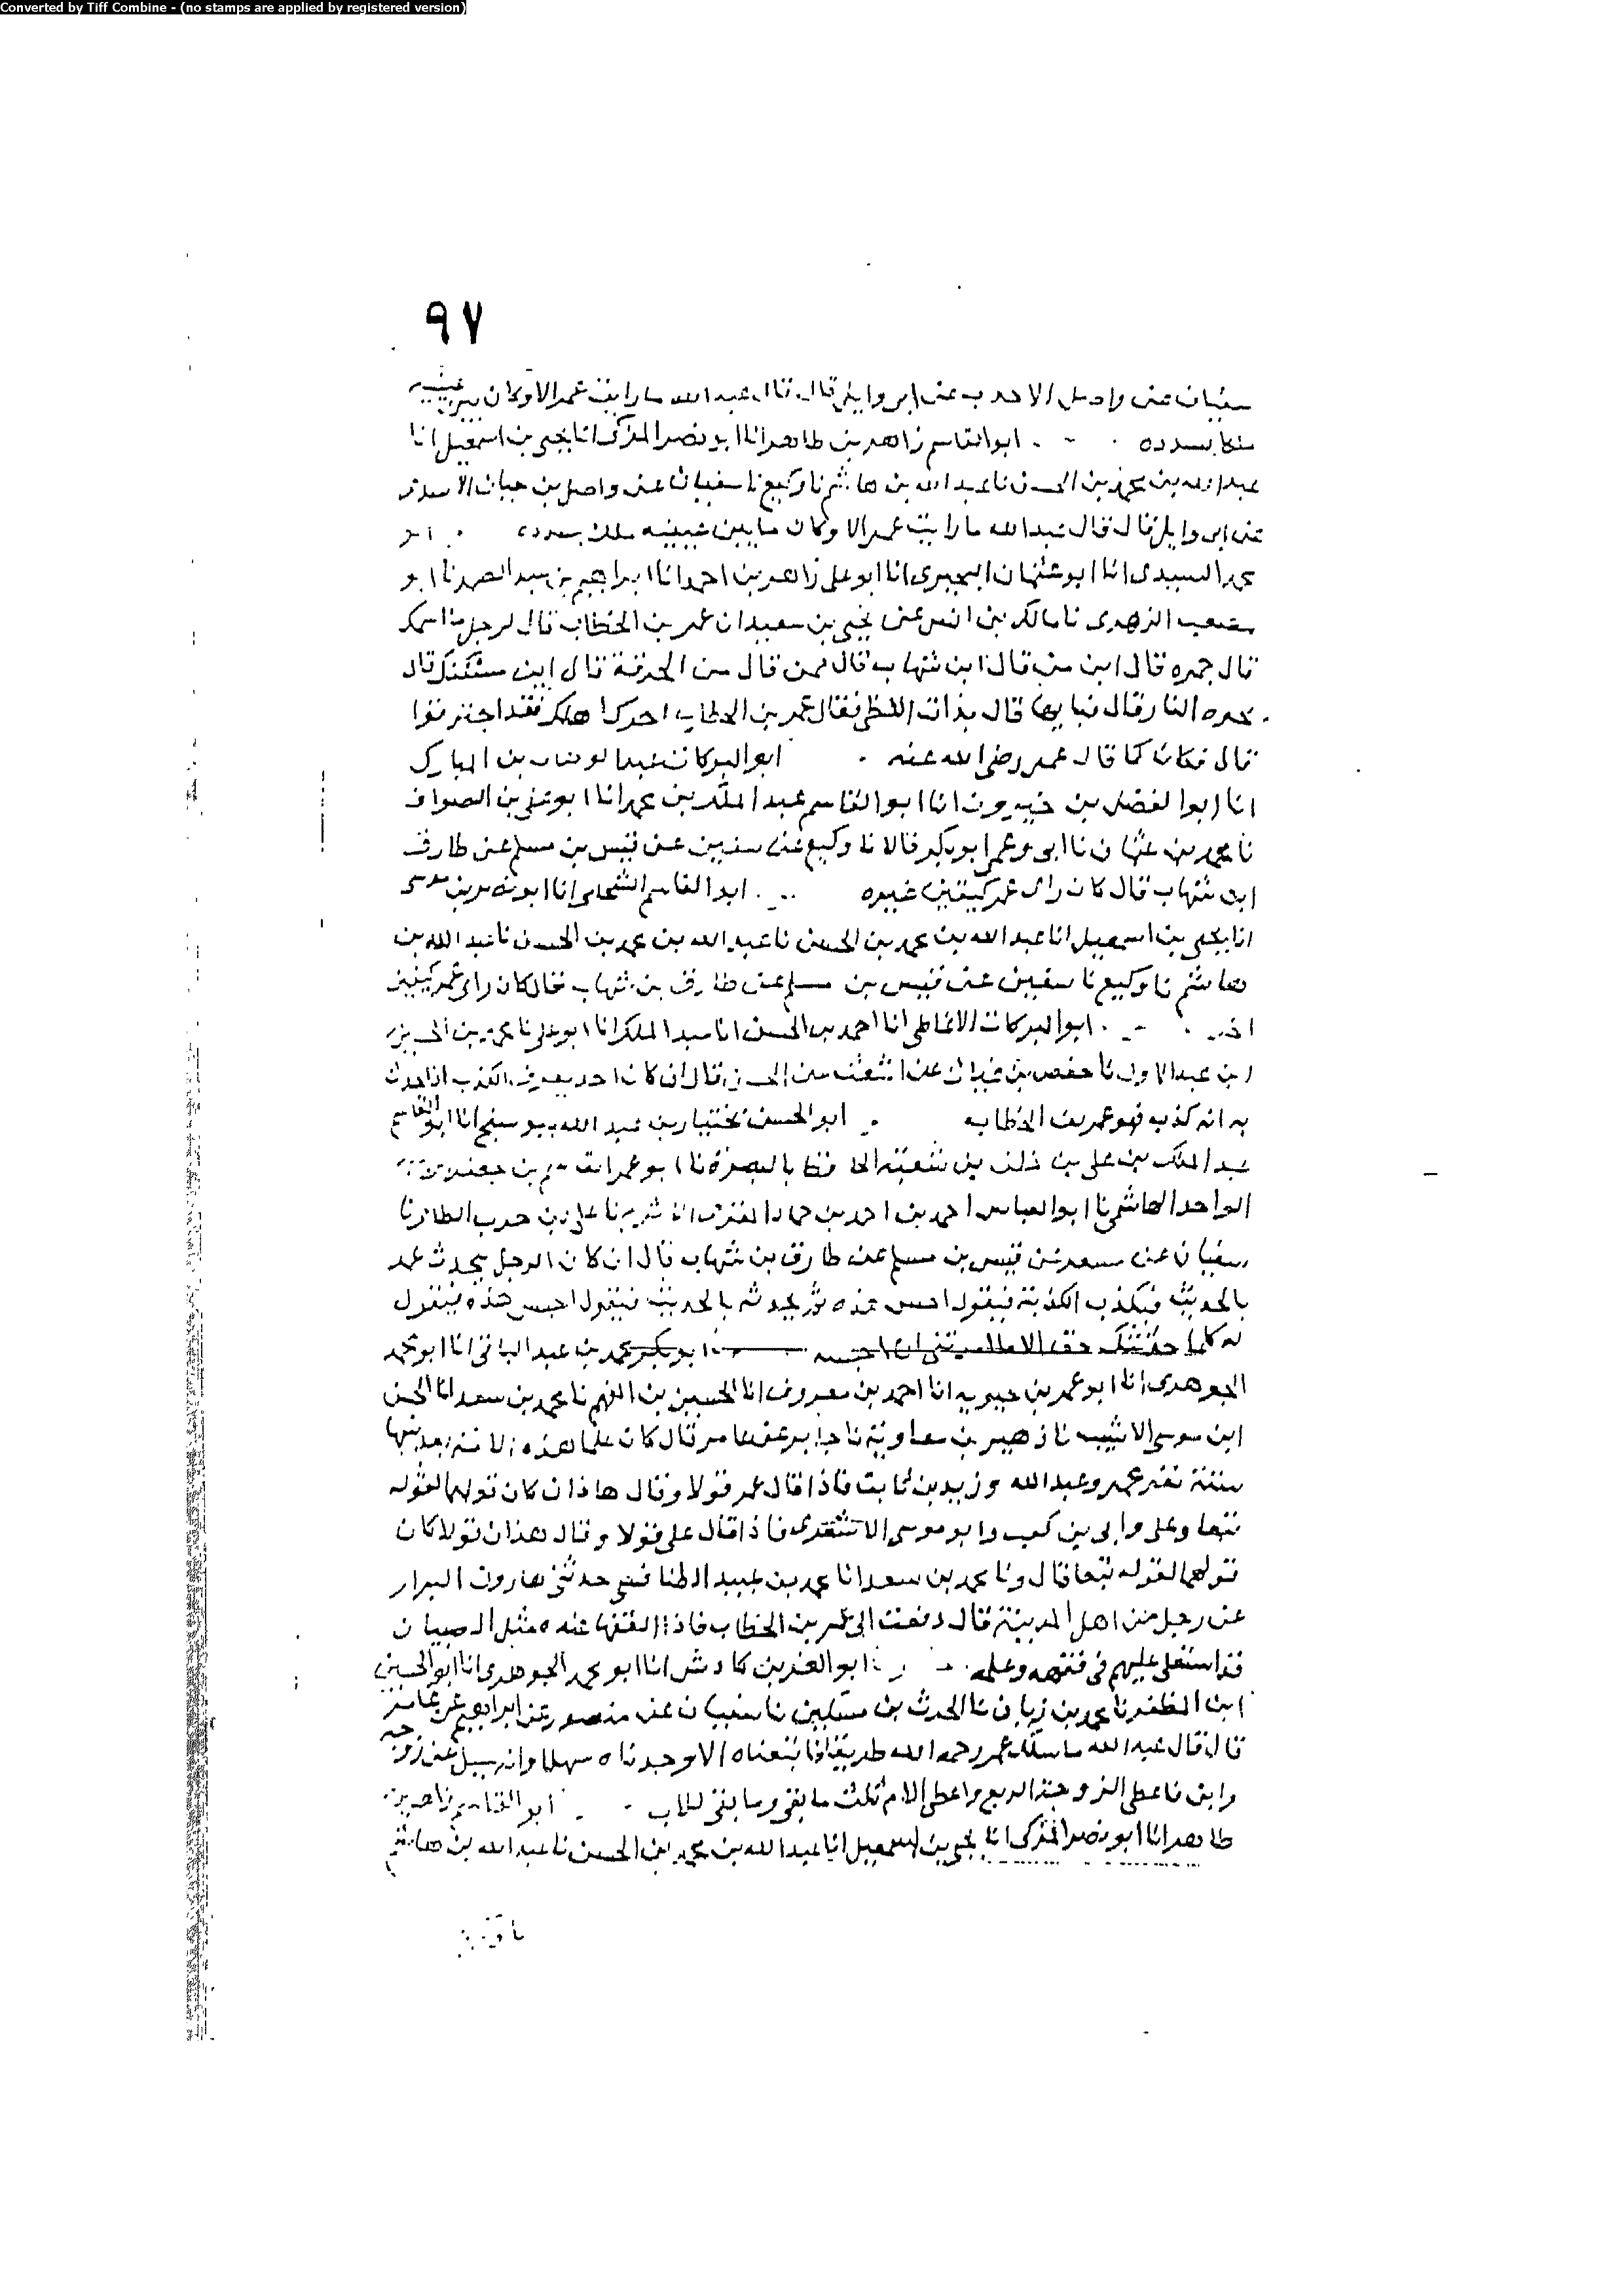 Converted by Tiff Combine - (no stamps are applied by registered version)
٩٧
سفيان عن واصل الاحدب عن ابي وايل قال قال عبد الله ما رايت عمر الا وكان بين عينيه
ملكا يسدده ابو القاسم زاهر بن طاهر انا ابو نصر المزكى انا يحيى بن اسمعيل انا
عبد الله بن محمد بن الحسن نا عبد الله بن هاشم نا وكيع نا سفيان عن واصل بن حيان الاسدى
عن ابي وايل قال قال عبد الله ما رايت عمر الا وكان ما بين عينيه ملك يسدده ابو
محمد السيدى انا ابو عثمان البحيرى انا ابو على زاهر بن احمد انا ابراهيم بن عبد الصمد نا ابو
مصعب الزهرى نا مالك بن انس عن يحيى بن سعيد ان عمر بن الخطاب قال لرجل ما اسمك
قال جمره قال ابن من قال ابن شهاب قال ممن قال من الحرقة قال اين مسكنك قال
بحره النار قال فبايها قال بذات اللظى فقال عمر بن الخطاب ادرك اهلك فقد احترقوا
قال فكان كما قال عمر رضى الله عنه ابو البركات عبد الوهاب بن المبارك
انا ابو الفضل بن خيرون انا ابو القاسم عبد الملك بن محمد انا ابو على بن الصواف
نا محمد بن عثمان نا ابى وعمى ابو بكر قالا نا وكيع عن سفين عن قيس بن مسلم عن طارق
ابن شهاب قال كان راى عمر كيقين غيره ابو القاسم الشحامى انا ابو نصر بن موسى
انا يحيى بن اسمعيل انا عبد الله بن محمد بن الحسن نا عبد الله بن محمد بن الحسن نا عبد الله بن
هاشم نا وكيع نا سفين عن قيس بن مسلم عن طارق بن شهاب قال كان راى عمر كيقين
اخر ابو البركات الانماطى انا احمد بن الحسن انا عبد الملك انا ابو على نا محمد بن
ابن عبد الاول نا حفص بن غياث عن اشعث عن الحسن قال ان كان احد يعرف الكذب اذا حدث
به انه كذب فهو عمر بن الخطاب ابو الحسن بختيار بن عبد الله ببوسنج انا ابو القاسم
عبد الملك بن على بن خلف بن شعبة الحافظ بالبصرة نا ابو عمر القاسم بن جعفر بن عبد
الواحد الهاشمى نا ابو العباس احمد بن احمد بن حماد المقرى الاثرم نا على بن حرب الطائى نا
سفيان عن مسعر عن قيس بن مسلم عن طارق بن شهاب قال ان كان الرجل يحدث عمر
بالحديث فيكذب الكذبة فيقول احبس هذه ثم يحدثه بالحديث فيقول احبس هذه فيقول
له كلما حدثتك حق الا ما امرتنى ان احبسه ابو بكر محمد بن عبد الباقى انا ابو محمد
الجوهرى انا ابو عمر بن حيويه انا احمد بن معروف انا الحسين بن الفهم نا محمد بن سعد انا الحسن
ابن موسى الاشيب نا زهير بن معاوية نا جابر عن عامر قال كان علما هذه الامة بعد نبيها
ستة نفر عمر وعبد الله وزيد بن ثابت فاذا قال عمر قولا وقال هاذان كان قولهما لقوله
تبعا وعلى وابى بن كعب وابو موسى الاشعرى فاذا قال على قولا وقال هذان قولا كان
قولهما لقوله تبعا قال ونا محمد بن سعد انا محمد بن عبيد الطنافسى حدثنى هارون البرار
عن رجل من اهل المدينة قال دفعت الى عمر بن الخطاب فاذا الفقها عنده مثل الصبيان
قد استعلى عليهم فى فقهه وعلمه ابو العز بن كادش انا ابو محمد الجوهرى انا ابو الحسين
ابن المظفر نا محمد بن زبان نا الحرث بن مسكين نا سفيان عن منصور عن ابراهيم عن
قال قال عبد الله ما سلك عمر رحمه الله طريقا فاتبعناه الا وجدناه سهلا وانه سيل عن زوجه
وابوين فاعطى الزوجة الربع واعطى الام ثلث ما بقى وما بقى للاب ابو القاسم زاهر بن
طاهر انا ابو نصر المزكى انا يحيى بن اسمعيل انا عبد الله بن محمد بن الحسن نا عبد الله بن هاشم